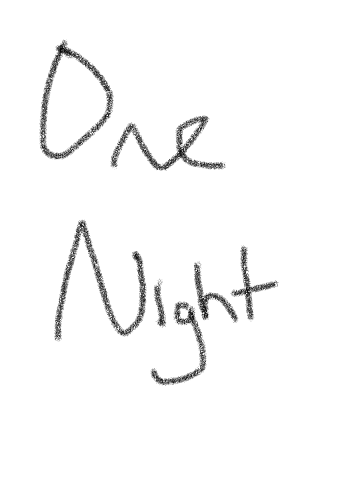 One
Night